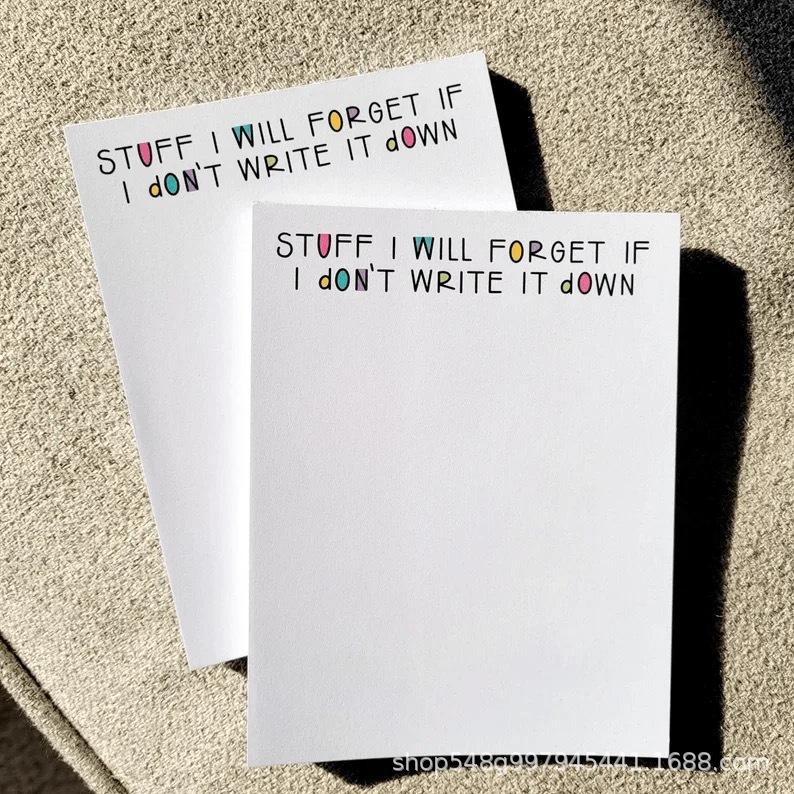 STUFF I WILL FORGET IF
I dON'T WRITE IT dOWN
STUFF I WILL FORGET IF
I dON'T WRITE IT dOWN
shop548g997945441.1688.com